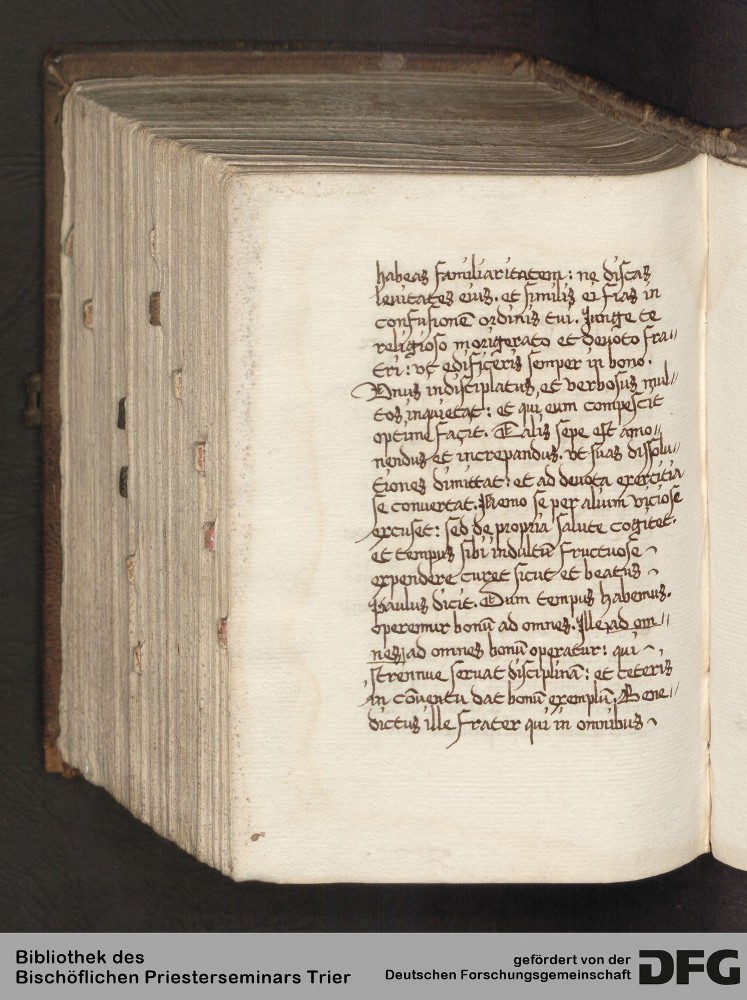 habeas familiaritatem: ne discas
leuitates eius. et similis ei fias in
confusionē ordinis tui. Junge te
religioso morigerato et deuoto fra〃
tri: vt edificeris semper in bono.
Vnus indisciplatus, et verbosus mul〃
tos inquietat: et qui eum compescit
optime facit. Talis sepe est amo〃
nendus et increpandus. vt suas dissolu〃
tiones dimittat: et ad deuota exercitia
se conuertat. Nemo se per alium viciose
excuset: sed de propria salute cogitet.
et tempus sibi indultū fructuose ~
expendere curet sicut et beatus ~
Paulus dicit. Dum tempus habemus.
operemur bonū ad omnes. Ille ad om〃
nes ad omnes bonū operatur: qui ~
strennue seruat disciplinā: et ceteris
in cōuentu dat bonū exemplū. Bene〃
dictus ille frater qui in omnibus ~
Bibliothek des
Bischöflichen Priesterseminars Trier
gefördert von der
Deutschen Forschungsgemeinschaft
DFG